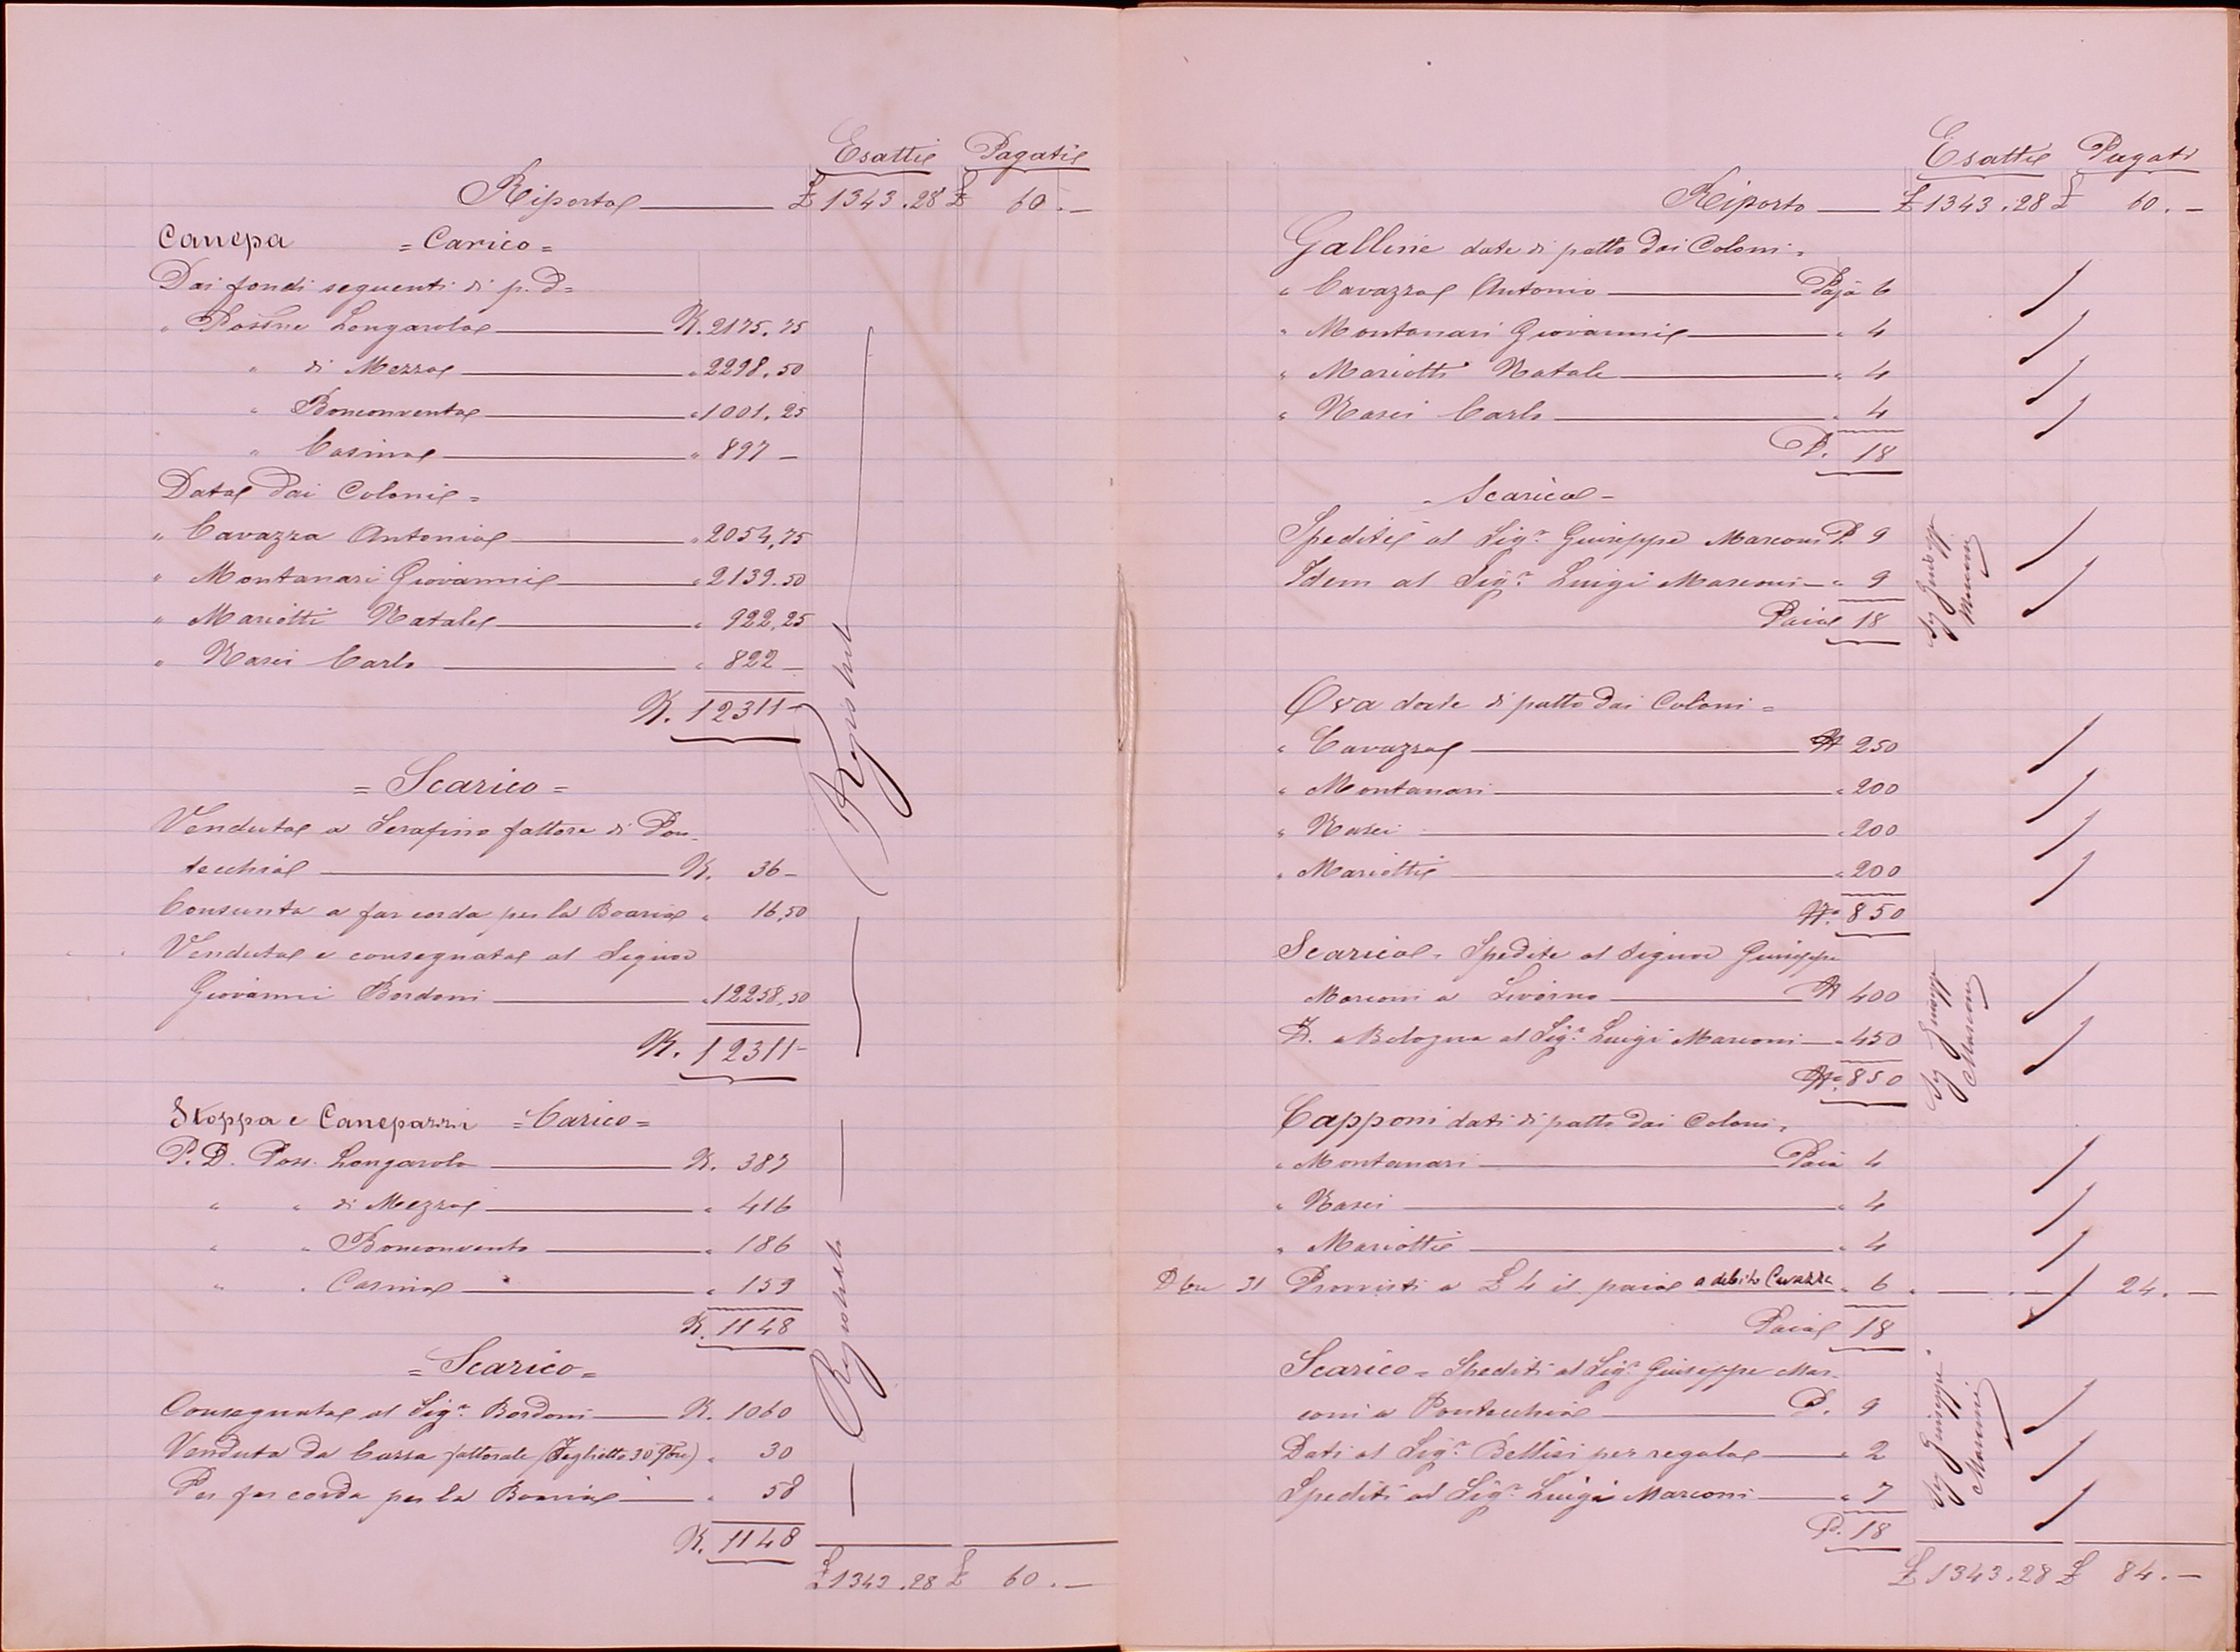 Esatti Pagati
Riporto £ 1343.28 £ 60.—
Canepa = Carico =
Dai fondi seguenti di p. D =
" Possne Longarola K. 2175.75
" di Mezzo " 2298.50
" Bonconvento " 1001.25
" Casina " 897 —
Data dai Coloni =
" Cavazza Antonio " 2054,75
" Montanari Giovanni " 2139.50
" Mariotti Natale " 922,25
" Nasci Carlo " 822 —
K. 12311 —
= Scarico =
Venduta a Serafino fattore di Pon-
tecchio K. 36 —
Consunta a far corda per la Boaria " 16,50
Venduta e consegnata al Signor
Giovanni Bordoni " 12258,50
K. 12311 —
Registrato
Stoppa e Canepazzi = Carico =
P. D. Poss. Longarola K. 387
" " di Mezzo " 416
" " Bonconvento " 186
" " Casina " 159
K. 1148
= Scarico =
Consegnata al Sigr. Bordoni K. 1060
Venduta da Cassa fattorale (Foglietto 30 9bre) " 30
Per far corda per la Boaria " 58
K. 1148
Registrato
£ 1343.28 £ 60.—
Esatti Pagati
Riporto £ 1343.28 £ 60.—
Galline date di patto dai Coloni =
" Cavazza Antonio Paja 6
" Montanari Giovanni " 4
" Mariotti Natale " 4
" Nasci Carlo " 4
P. 18
- Scarico -
Spedite al Sigr. Giuseppe Marconi P. 9
Idem al Sigr. Luigi Marconi " 9
Paia 18
Sig Giusepp Marconi
Ova date di patto dai Coloni =
" Cavazza N 250
" Montanari " 200
" Nasci " 200
" Mariotti " 200
N. 850
Scarico = Spedite al Signor Giuseppe
Marconi a Livorno N 400
D. a Bologna al Sigr. Luigi Marconi " 450
N. 850
Sig Giusepp Marconi
Capponi dati di patto dai Coloni =
" Montanari Paia 4
" Nasci " 4
" Mariotti " 4
Dbre 31 Provvisti a £ 4 il paio a debito Cavazza " 6 . — . — 24.—
Paia 18
Scarico = Spediti al Sigr. Giuseppe Mar-
coni a Pontecchio P. 9
Dati al Sigr. Bellisi per regalo " 2
Spediti al Sigr. Luigi Marconi " 7
P. 18
Sig Giuseppe Marconi
£ 1343.28 £ 84.—